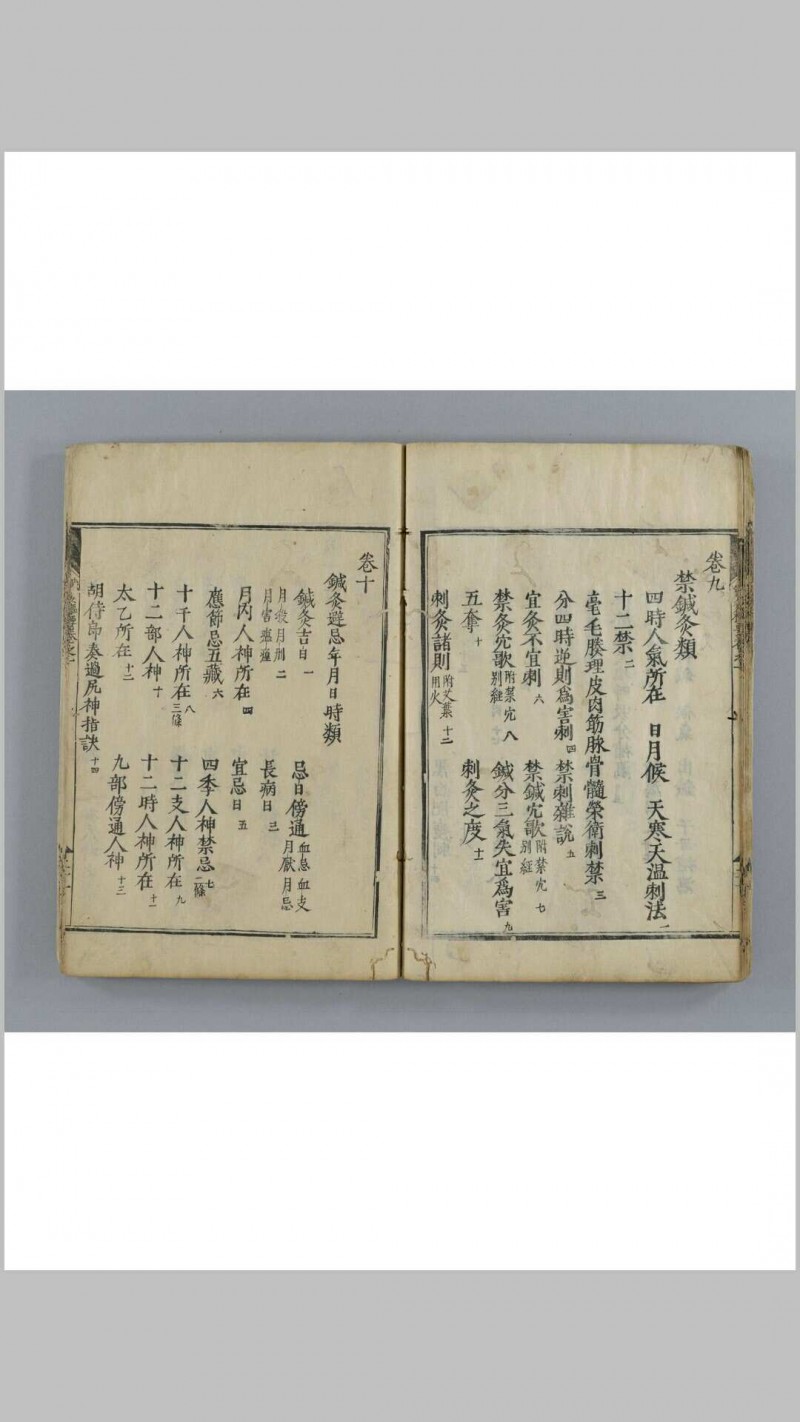 卷九
禁鍼灸類
四時人氣所在 日月候 天寒天溫刺法 一
十二禁 二
毫毛腠理皮肉筋脉骨髓榮衛刺禁 三
分四時逆則爲害刺 四 禁刺雜說 五
宜灸不宜刺 六 禁鍼穴歌 附禁穴別經 七
禁灸穴歌 附禁穴別經 八 鍼分三氣失宜爲害 九
五奪 十 刺灸之度 十一
刺灸諸則 附艾葉用火 十二
卷十
鍼灸避忌年月日時類
鍼灸吉日 一 忌日傍通 血忌血支月厭月忌
月殺月刑月害 二 長病日 三
月內人神所在 四 宜忌日 五
應節忌五藏 六 四季人神禁忌 七 二條
十干人神所在 八 三條 十二支人神所在 九
十二部人神 十 十二時人神所在 十一
太乙所在 十二 九部傍通人神 十三
胡侍郎奏過尻神指訣 十四